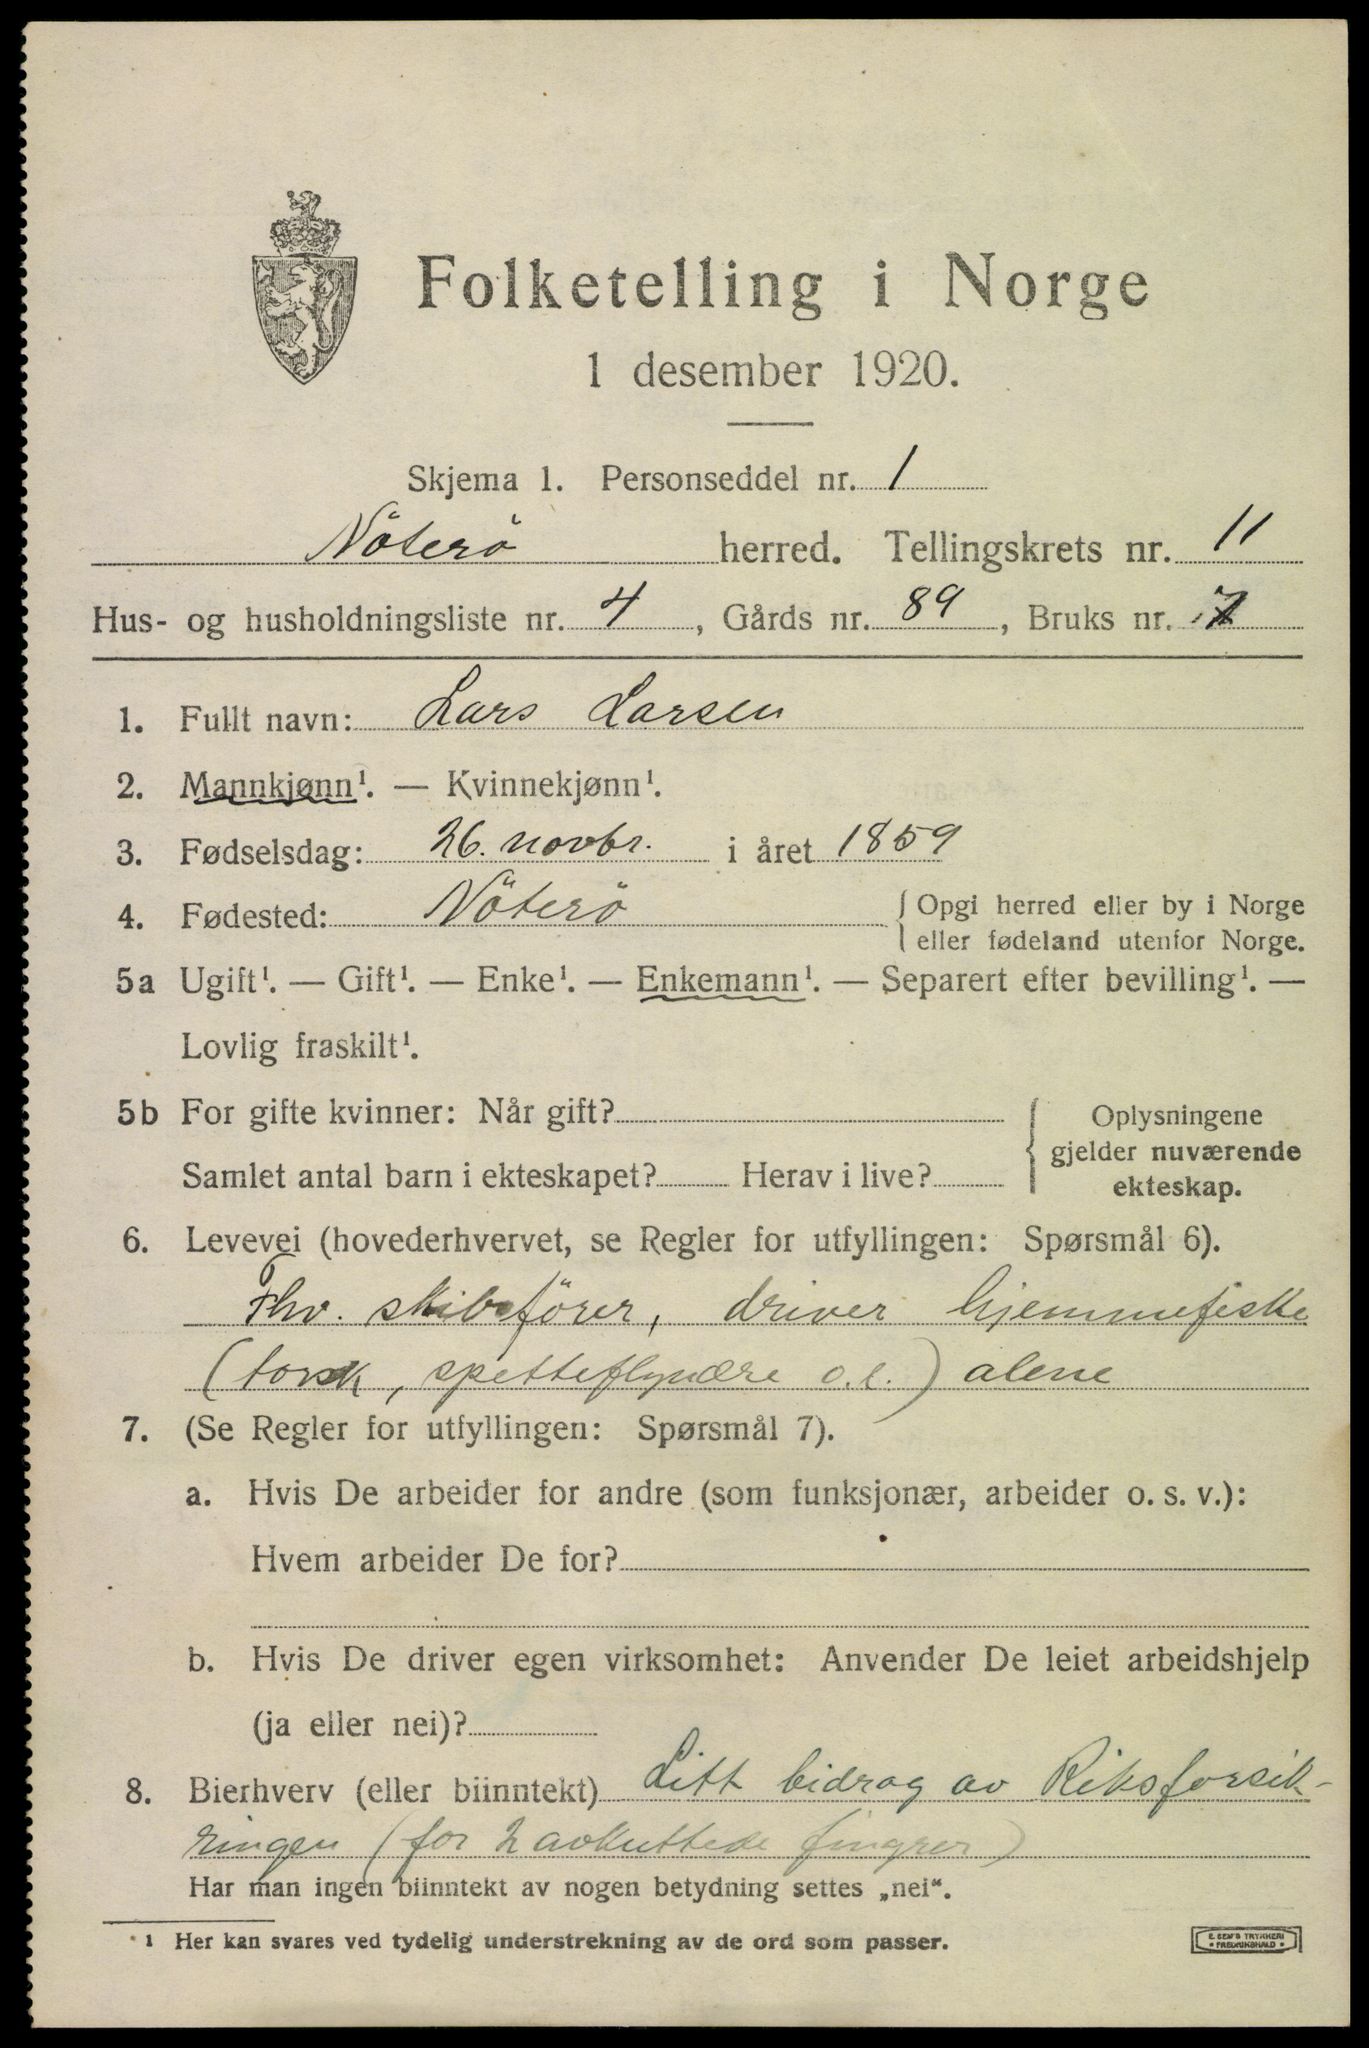 Folketelling i Norge
1 desember 1920.
Skjema 1. Personseddel nr. 1
Nöterö herred. Tellingskrets nr. 11
Hus- og husholdningsliste nr. 4, Gårds nr. 89, Bruks nr. 7
1. Fullt navn: Lars Larsen
2. Mannkjønn¹. — Kvinnekjønn¹.
3. Fødselsdag: 26. novbr. i året 1859
4. Fødested: Nöterö { Opgi herred eller by i Norge
eller fødeland utenfor Norge.
5a Ugift¹. — Gift¹. — Enke¹. — Enkemann¹. — Separert efter bevilling¹. —
Lovlig fraskilt¹.
5b For gifte kvinner: Når gift?
Samlet antal barn i ekteskapet? Herav i live?
{ Oplysningene
gjelder nuværende
ekteskap.
6. Levevei (hovederhvervet, se Regler for utfyllingen: Spørsmål 6).
Fhv. skibsförer, driver hjemmefiske
(torsk, spetteflyndre o.l.) alene
7. (Se Regler for utfyllingen: Spørsmål 7).
a. Hvis De arbeider for andre (som funksjonær, arbeider o. s. v.):
Hvem arbeider De for?
b. Hvis De driver egen virksomhet: Anvender De leiet arbeidshjelp
(ja eller nei)?
8. Bierhverv (eller biinntekt) Litt bidrag av Riksforsik-
ringen (for 2 avkuttede fingrer)
Har man ingen biinntekt av nogen betydning settes „nei“.
¹ Her kan svares ved tydelig understrekning av de ord som passer.
E. SEM'S TRYKKERI
• FREDRIKSHALD •